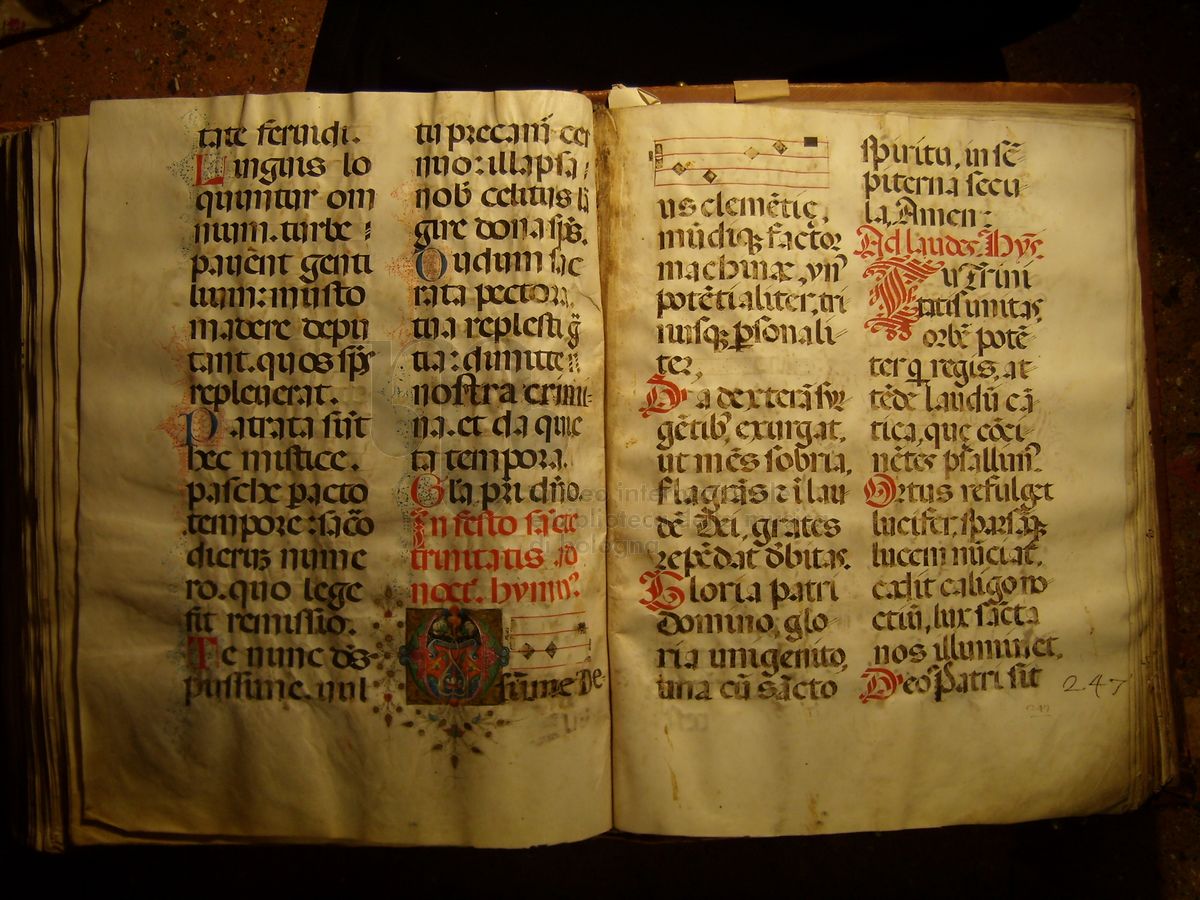 tate feruidi.
Linguis lo
quuntur om
nium. turbe
pauent genti
lium: musto
madere depu
tant. quos sp̄s
repleuerat.
Patrata sūt
hec mistice.
pasche pacto
tempore: sac̄o
dierum nume
ro. quo lege
fit remissio.
Te nunc d̄s
pijssime. uul
tu precam̄ cer
nuo: illapsa
nob̄ celitus la
gire dona sp̄s.
Dudum sac
rata pectora,
tua replesti ḡ
tia: dimitte
nostra crimi-
na. et da quie
ta tempora.
Gl̄a pr̄i dn̄o.
In festo sāc̄te
trinitatis ad
noct̄. hymn̄.
Sūme De-
us clemētię,
mūdiq; factor
machinæ, vn̄
potētialiter, tri
nusq; ꝑsonali-
ter,
Da dexterā sur
gētib; exurgat,
ut mēs sobria,
flagrās ē ī lau
dē Dei, grates
repēdat dēbitas.
Gloria patri
Domino, glo-
ria unigenito,
una cū sācto
spiritu, in sē-
piterna secu-
la, Amen:
Ad laudes. Hȳs.
Tu Trini
tatis unitas,
orbē potē
ter q̄ regis, at-
tēde laudū cā
tica, que excu
nētes psallim̄.
Ortus refulget
lucifer, sparsāq;
lucem nūciat,
cadit caligo no
ctiū, lux sācta
nos illuminet.
Deo Patri sit
247